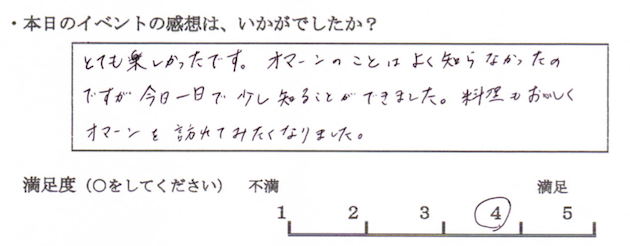 ・本日のイベントの感想は、いかがでしたか？
とても楽しかったです。オマーンのことはよく知らなかったの
ですが今日一日で少し知ることができました。料理もおいしく
オマーンを訪れてみたくなりました。
満足度（○をしてください） 不満 満足
1 2 3 4 5